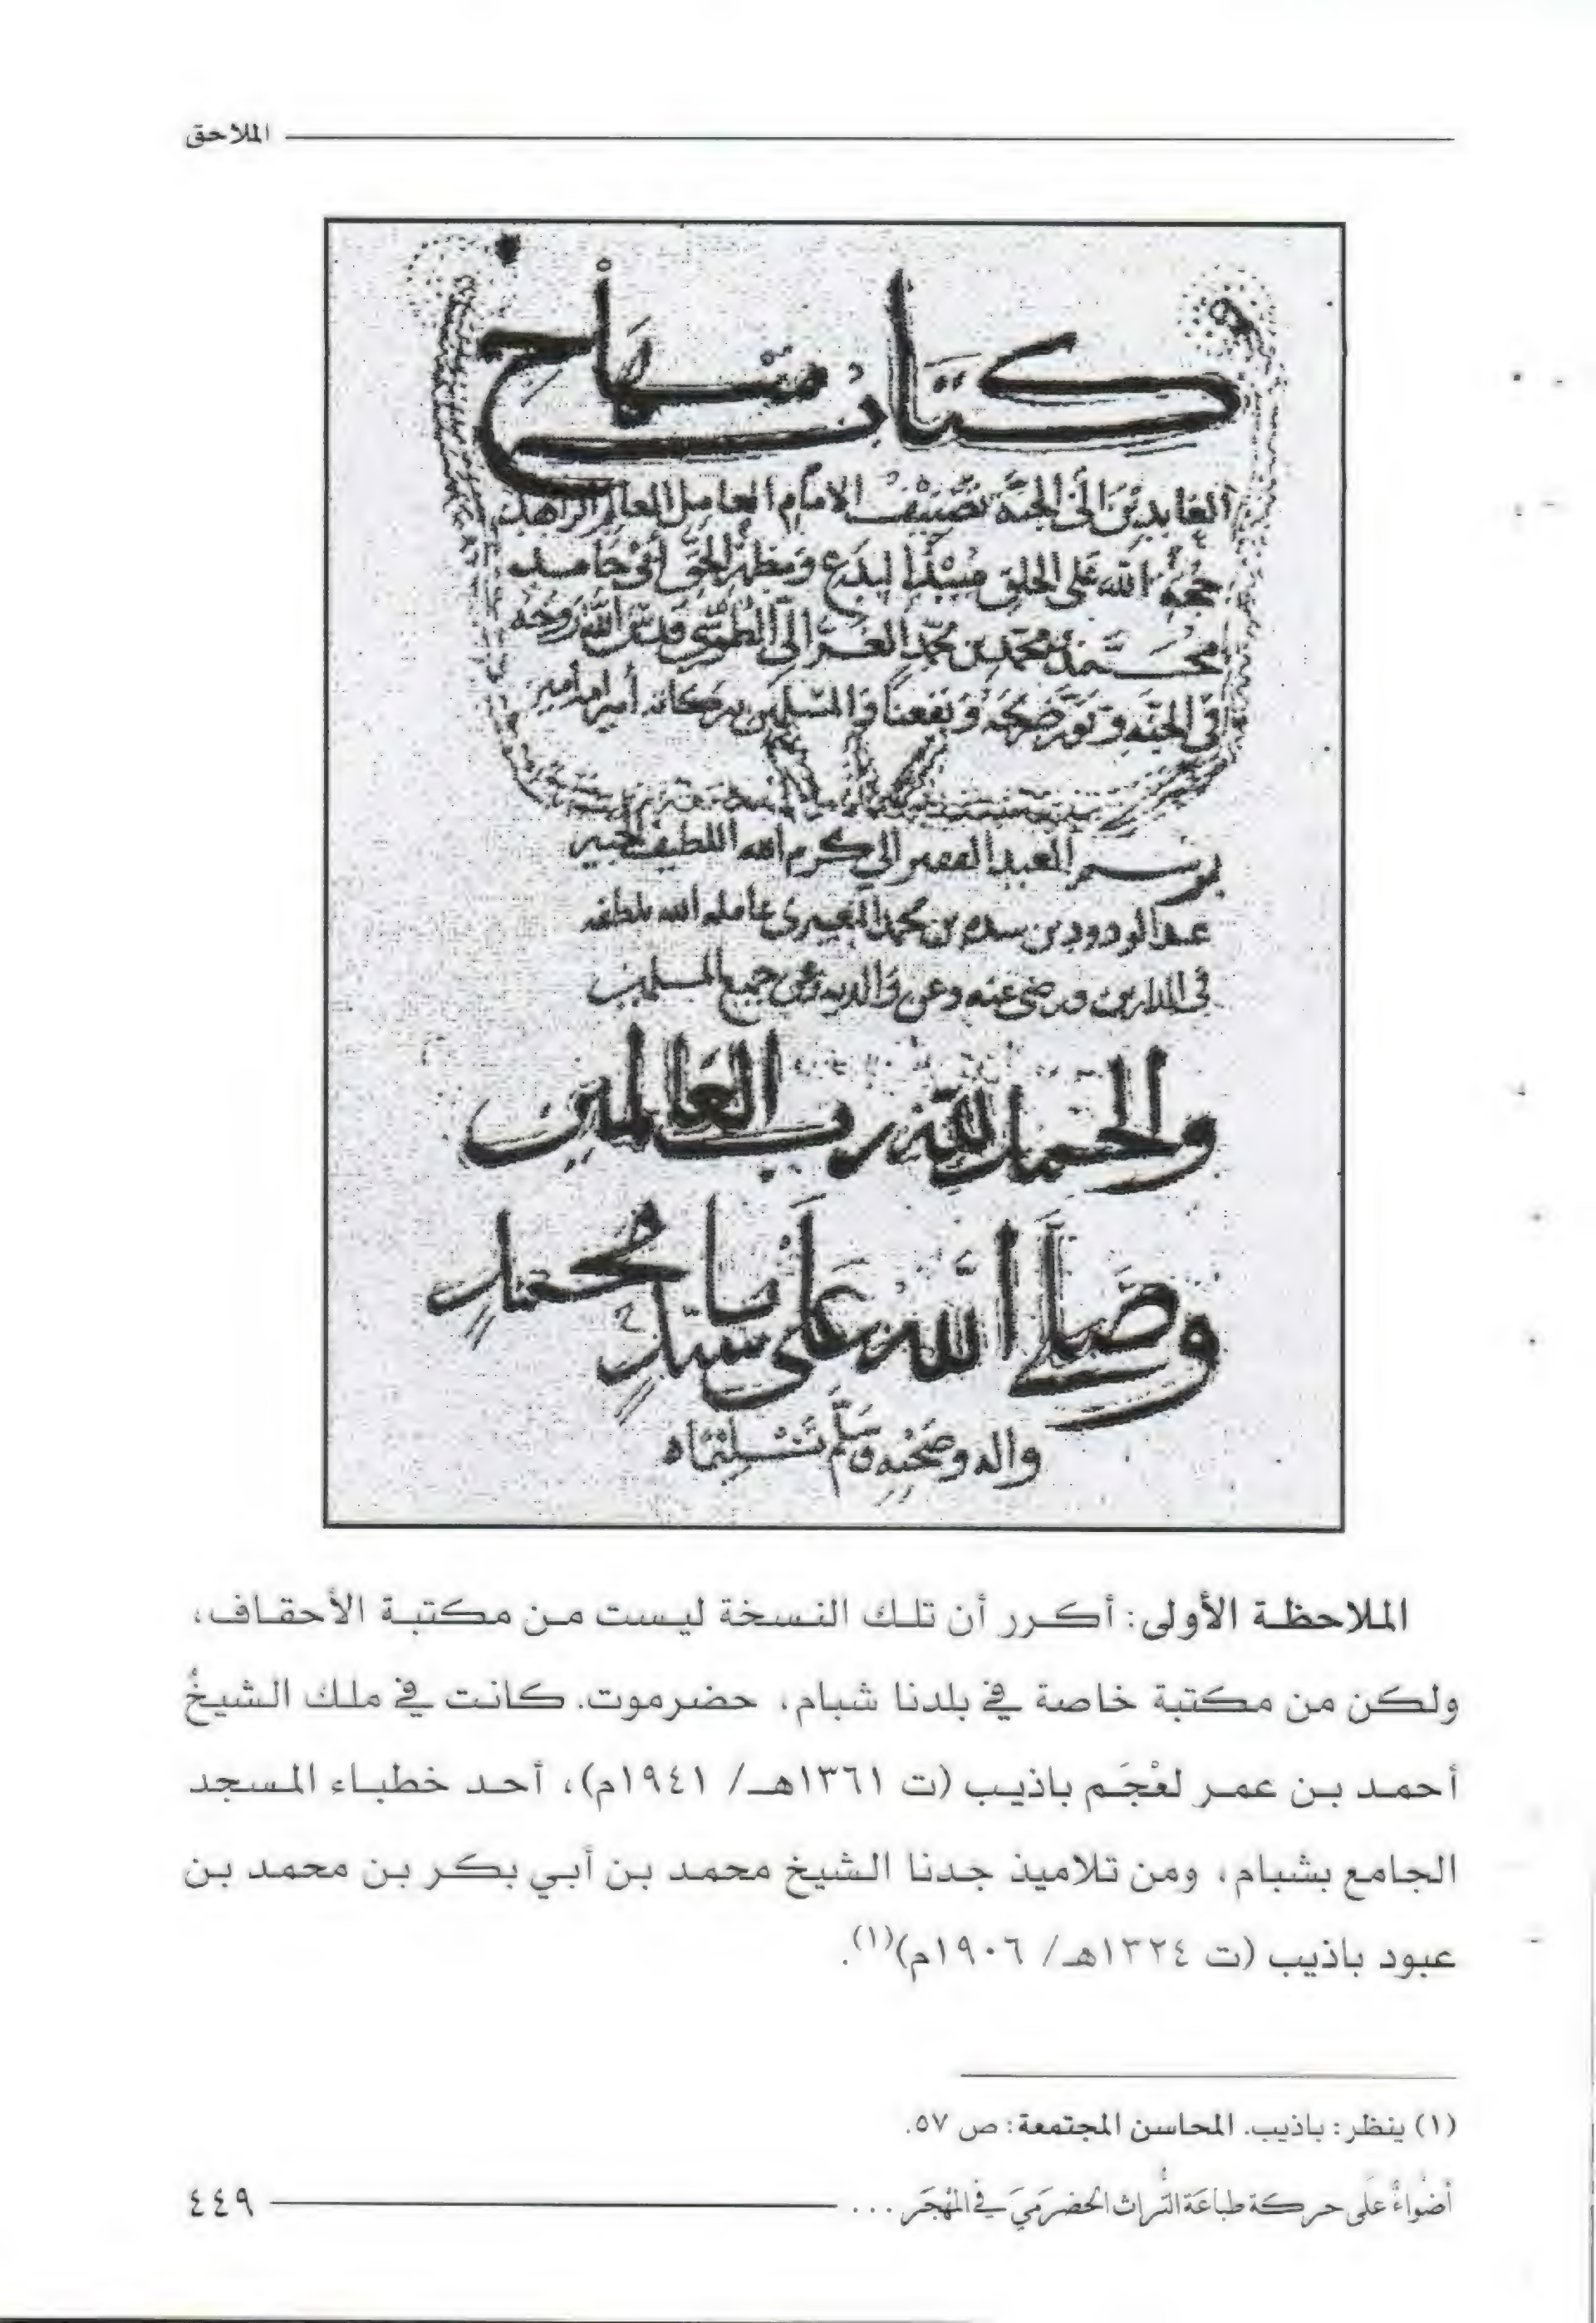 الملاحق
كتاب منهاج
العابدين الى الجنة تصنيف الامام العامل العالم الزاهد
حجة الله على الخلق مبتدا البدع ومظهر الحق ابي حامد
محمد بن محمد بن محمد الغزالي الطوسي قدس الله روحه
في الجنه ونور ضريحه ونفعنا والمسلمين ببركاته امين امين امين
برسم العبد الفقير الى كرم الله اللطيف الخبير
عبد الودود بن سدم بن محمد عامله الله بلطفه
في الدارين ورضي عنه وعن والديه وعن جميع المسلمين
والحمد لله رب العالمين
وصلى الله على سيدنا محمد
واله وصحبه وسلم تسليما
الملاحظة الأولى: أكرر أن تلك النسخة ليست من مكتبة الأحقاف،
ولكن من مكتبة خاصة في بلدنا شبام، حضرموت. كانت في ملك الشيخُ
أحمد بن عمر لعْجَم باذيب (ت ١٣٦١هـ/ ١٩٤١م)، أحد خطباء المسجد
الجامع بشبام، ومن تلاميذ جدنا الشيخ محمد بن أبي بكر بن محمد بن
عبود باذيب (ت ١٣٢٤هـ/ ١٩٠٦م)(١).
(١) ينظر: باذيب. المحاسن المجتمعة: ص ٥٧.
أضواءٌ على حركة طباعة التُّراث الحضرَميَ في المهْجَر ...
٤٤٩